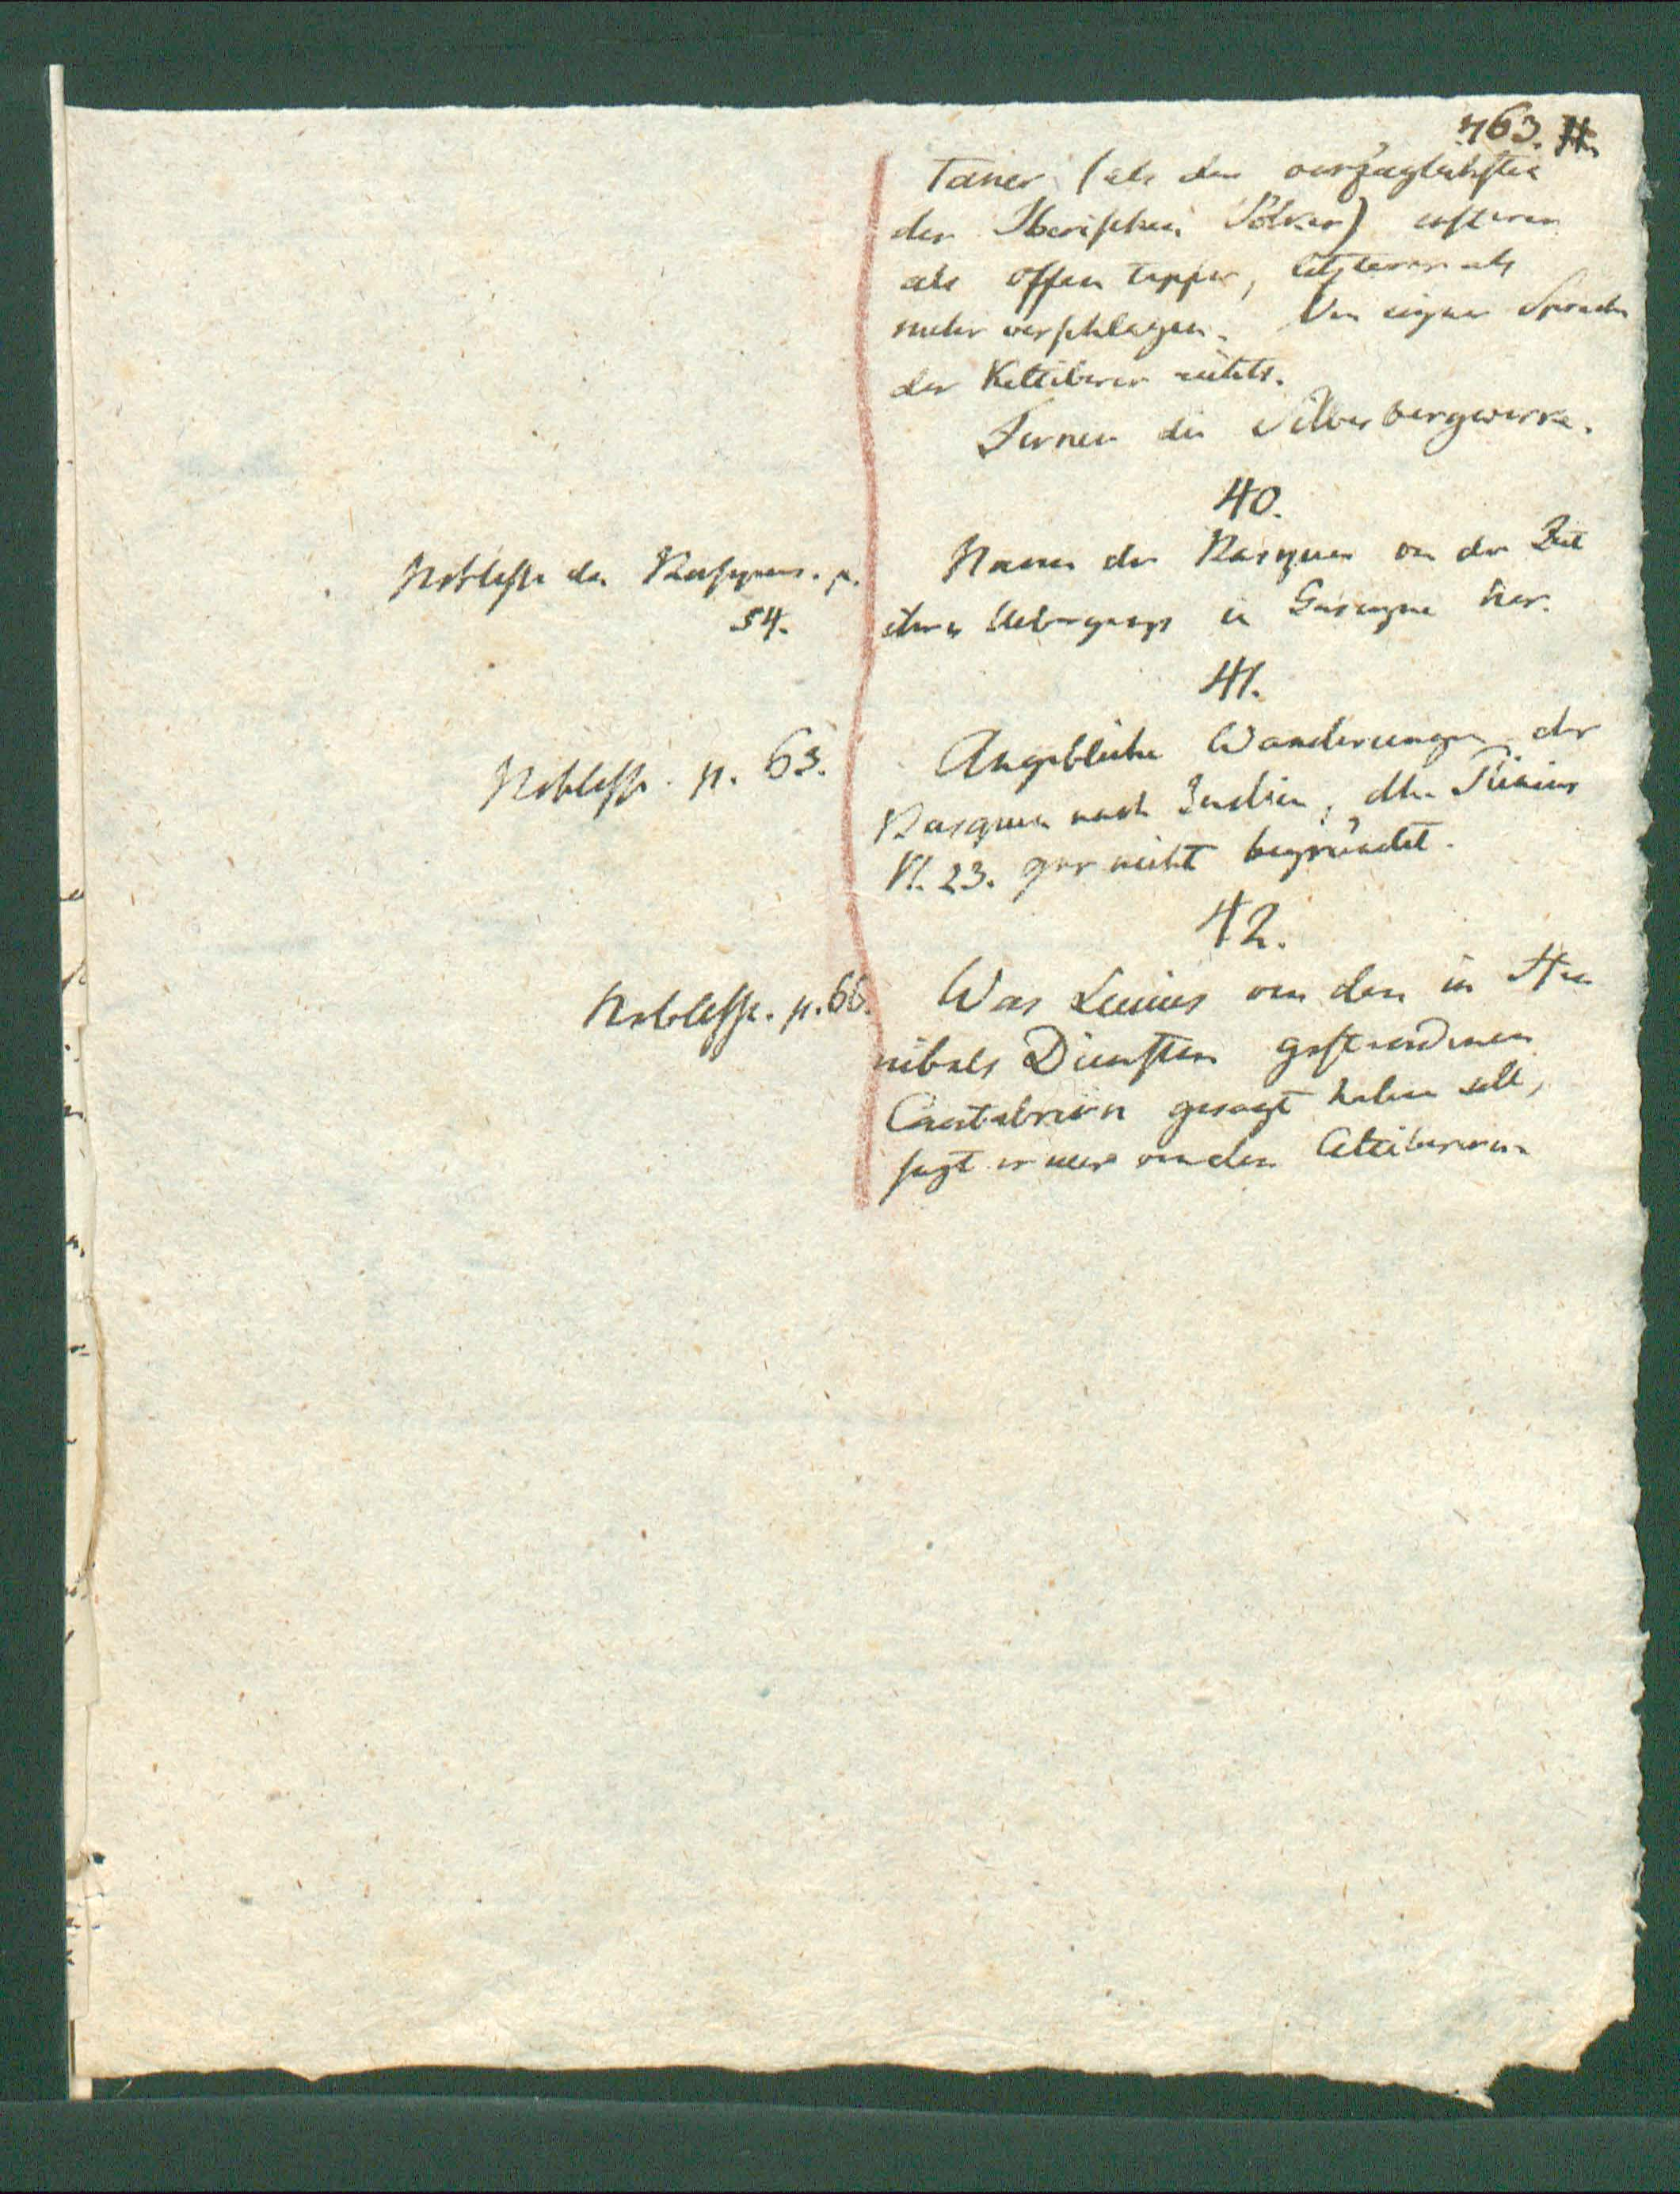 463.
taner (als den vorzüglichsten
der Iberischen Völker) ersteren
als offen tapfer, letzteren als
mehr verschlagen. Von eigner Sprache
der Keltiberer nichts.
Ferner die Silberbergwerke.
40.
Noblesse des Basques. p.
54.
Namen der Basquen von der Zeit
ihres Uebergangs in Gascogne her.
41.
Noblesse. p. 63.
Angebliche Wanderungen der
Basquen nach Indien, Plinius
VI. 23. gar nicht begründet.
42.
Noblesse. p. 66.
Was Livius von den in Han
nibals Diensten gestandenen
Cantabrern gesagt haben soll,
sagt er nur von den Celtiberern.